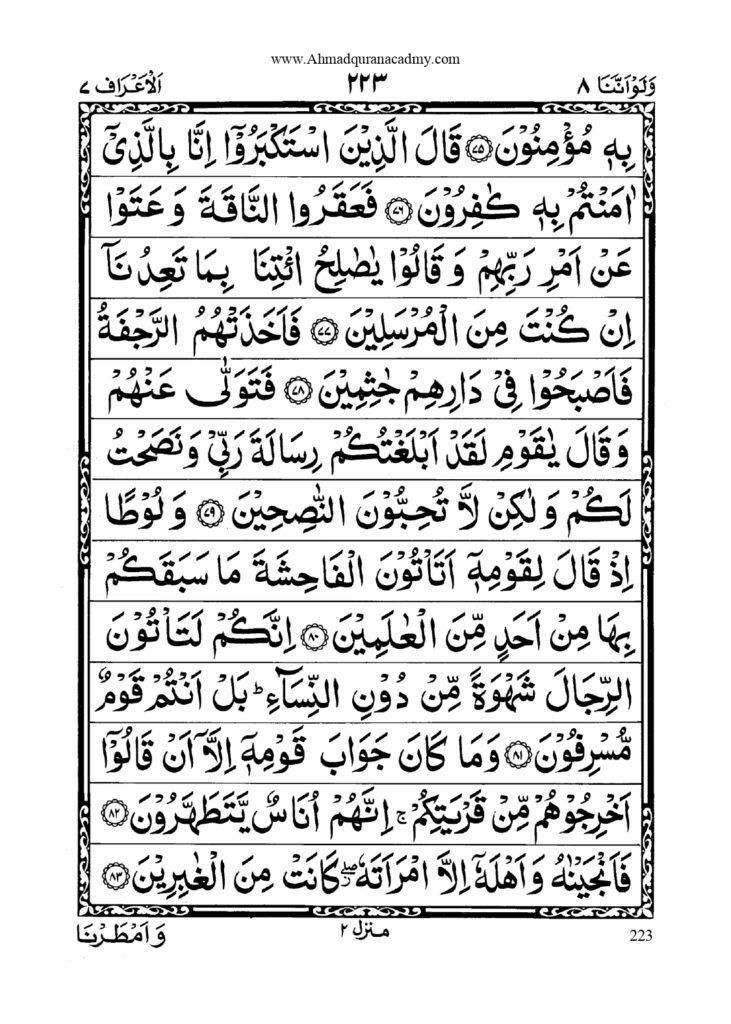 www.Ahmadquranacadmy.com
وَلَوْاَنَّنَا ٨ ٢٢٣ اَلْاَعْرَاف ٧
بِهٖ مُؤْمِنُوْنَ ۝٧٥ قَالَ الَّذِيْنَ اسْتَكْبَرُوْۤا اِنَّا بِالَّذِيْۤ
اٰمَنْتُمْ بِهٖ كٰفِرُوْنَ ۝٧٦ فَعَقَرُوا النَّاقَةَ وَ عَتَوْا
عَنْ اَمْرِ رَبِّهِمْ وَ قَالُوْا يٰصٰلِحُ ائْتِنَا بِمَا تَعِدُنَاۤ
اِنْ كُنْتَ مِنَ الْمُرْسَلِيْنَ ۝٧٧ فَاَخَذَتْهُمُ الرَّجْفَةُ
فَاَصْبَحُوْا فِيْ دَارِهِمْ جٰثِمِيْنَ ۝٧٨ فَتَوَلّٰى عَنْهُمْ
وَ قَالَ يٰقَوْمِ لَقَدْ اَبْلَغْتُكُمْ رِسَالَةَ رَبِّيْ وَ نَصَحْتُ
لَكُمْ وَ لٰكِنْ لَّا تُحِبُّوْنَ النّٰصِحِيْنَ ۝٧٩ وَ لُوْطًا
اِذْ قَالَ لِقَوْمِهٖۤ اَتَاْتُوْنَ الْفَاحِشَةَ مَا سَبَقَكُمْ
بِهَا مِنْ اَحَدٍ مِّنَ الْعٰلَمِيْنَ ۝٨٠ اِنَّكُمْ لَتَاْتُوْنَ
الرِّجَالَ شَهْوَةً مِّنْ دُوْنِ النِّسَآءِ ؕ بَلْ اَنْتُمْ قَوْمٌ
مُّسْرِفُوْنَ ۝٨١ وَمَا كَانَ جَوَابَ قَوْمِهٖۤ اِلَّاۤ اَنْ قَالُوْۤا
اَخْرِجُوْهُمْ مِّنْ قَرْيَتِكُمْ ۚ اِنَّهُمْ اُنَاسٌ يَّتَطَهَّرُوْنَ ۝٨٢
فَاَنْجَيْنٰهُ وَ اَهْلَهٗۤ اِلَّا امْرَاَتَهٗ ۖ كَانَتْ مِنَ الْغٰبِرِيْنَ ۝٨٣
وَ اَمْطَرْنَا منزل ٢ 223